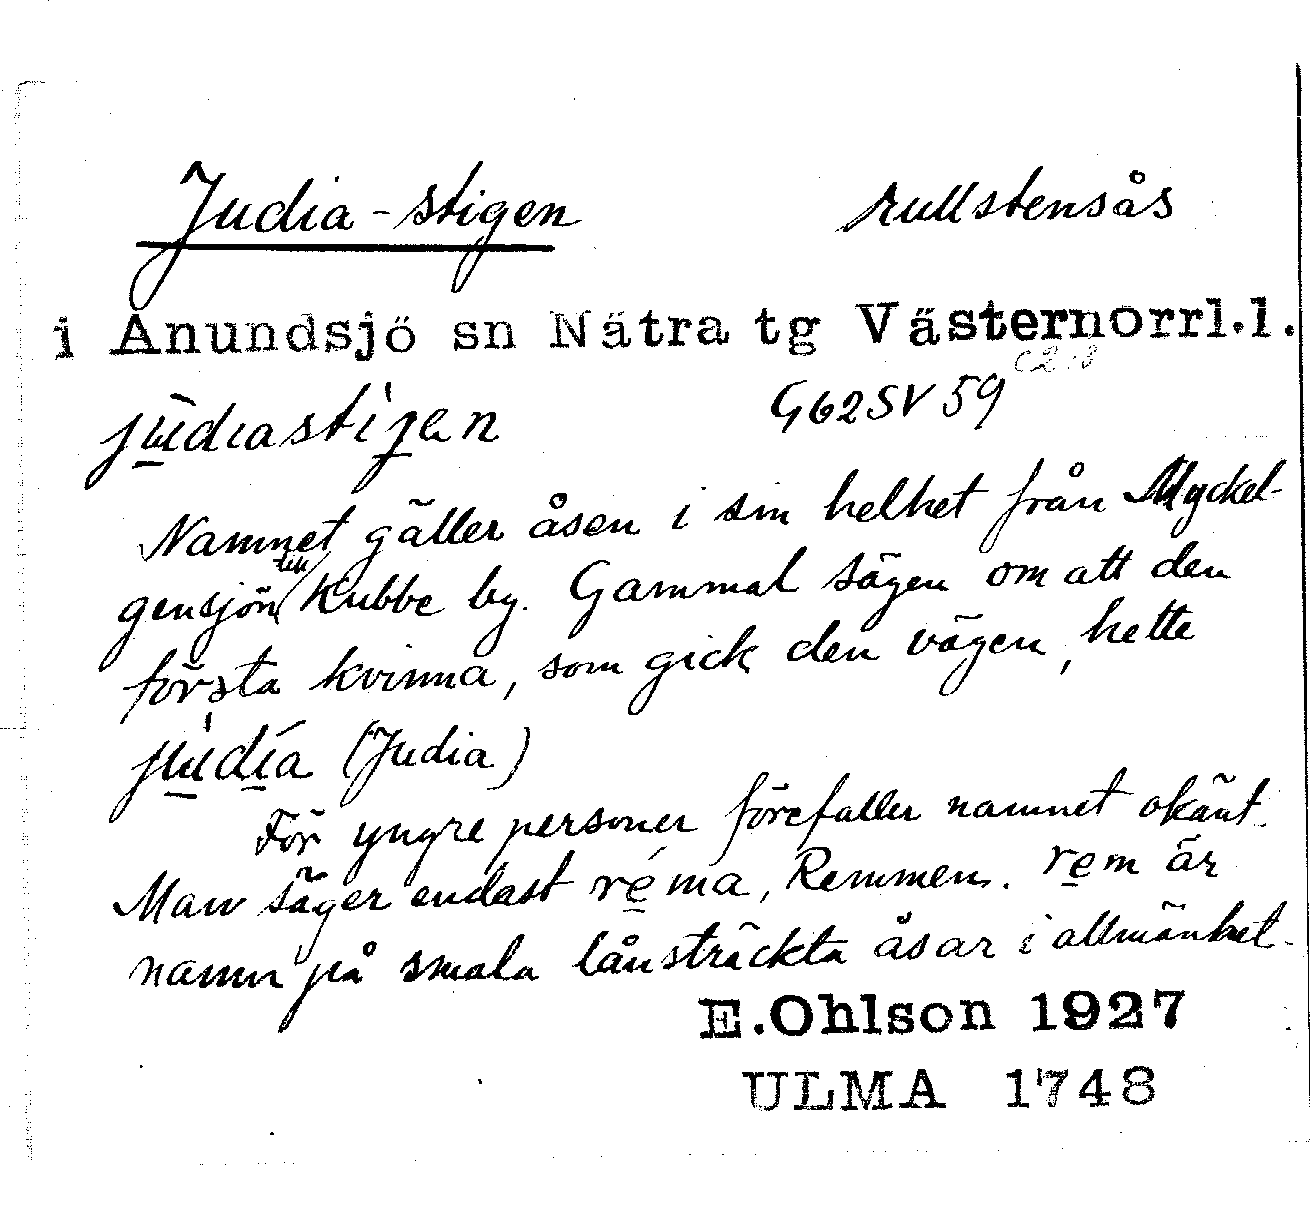 Judia-stigen rullstensås
i Anundsjö sn Nätra tg Västernorrl.l.
jūdiastigen G62SV59
Namnet gäller åsen i sin helhet från Myckel-
gensjön till Kubbe by. Gammal sägen om att den
första kvinna, som gick den vägen, hette
judia (Judia)
För yngre personer förefaller namnet okänt.
Man säger endast réma, Remmen. rem är
namn på smala långsträckta åsar i allmänhet.
E.Ohlson 1927
ULMA 1748